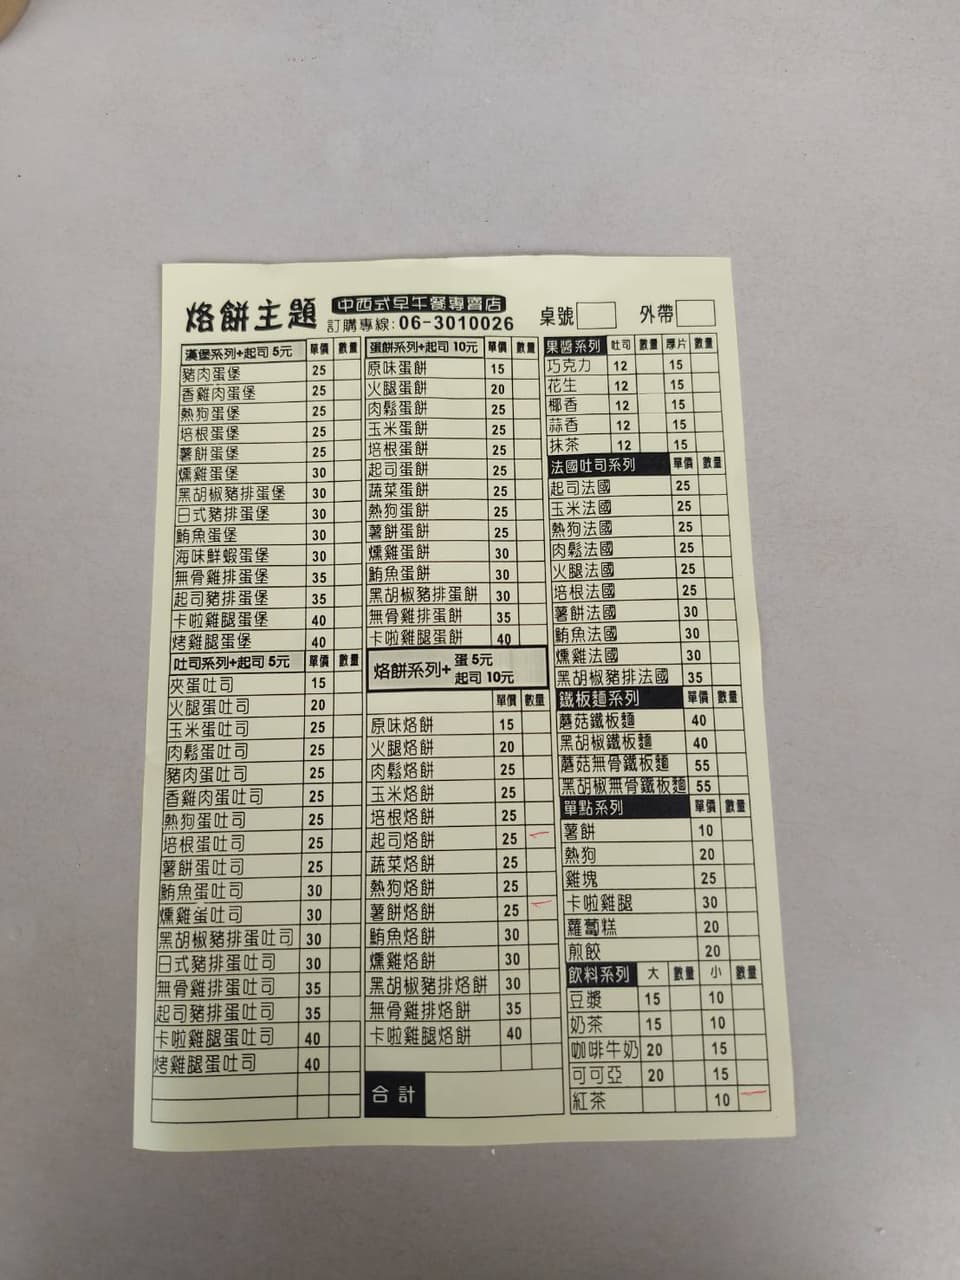 烙餅主題 中西式早午餐專賣店
訂購專線:06-3010026
桌號 外帶
漢堡系列+起司 5元 單價 數量
豬肉蛋堡 25
香雞肉蛋堡 25
熱狗蛋堡 25
培根蛋堡 25
薯餅蛋堡 25
燻雞蛋堡 30
黑胡椒豬排蛋堡 30
日式豬排蛋堡 30
鮪魚蛋堡 30
海味鮮蝦蛋堡 30
無骨雞排蛋堡 35
起司豬排蛋堡 35
卡啦雞腿蛋堡 40
烤雞腿蛋堡 40
吐司系列+起司 5元 單價 數量
夾蛋吐司 15
火腿蛋吐司 20
玉米蛋吐司 25
肉鬆蛋吐司 25
豬肉蛋吐司 25
香雞肉蛋吐司 25
熱狗蛋吐司 25
培根蛋吐司 25
薯餅蛋吐司 25
鮪魚蛋吐司 30
燻雞蛋吐司 30
黑胡椒豬排蛋吐司 30
日式豬排蛋吐司 30
無骨雞排蛋吐司 35
起司豬排蛋吐司 35
卡啦雞腿蛋吐司 40
烤雞腿蛋吐司 40
蛋餅系列+起司 10元 單價 數量
原味蛋餅 15
火腿蛋餅 20
肉鬆蛋餅 25
玉米蛋餅 25
培根蛋餅 25
起司蛋餅 25
蔬菜蛋餅 25
熱狗蛋餅 25
薯餅蛋餅 25
燻雞蛋餅 30
鮪魚蛋餅 30
黑胡椒豬排蛋餅 30
無骨雞排蛋餅 35
卡啦雞腿蛋餅 40
烙餅系列+ 蛋 5元
起司 10元
單價 數量
原味烙餅 15
火腿烙餅 20
肉鬆烙餅 25
玉米烙餅 25
培根烙餅 25
起司烙餅 25
蔬菜烙餅 25
熱狗烙餅 25
薯餅烙餅 25
鮪魚烙餅 30
燻雞烙餅 30
黑胡椒豬排烙餅 30
無骨雞排烙餅 35
卡啦雞腿烙餅 40
合計
果醬系列 吐司 數量 厚片 數量
巧克力 12 15
花生 12 15
椰香 12 15
蒜香 12 15
抹茶 12 15
法國吐司系列 單價 數量
起司法國 25
玉米法國 25
熱狗法國 25
肉鬆法國 25
火腿法國 25
培根法國 25
薯餅法國 30
鮪魚法國 30
燻雞法國 30
黑胡椒豬排法國 35
鐵板麵系列 單價 數量
蘑菇鐵板麵 40
黑胡椒鐵板麵 40
蘑菇無骨鐵板麵 55
黑胡椒無骨鐵板麵 55
單點系列 單價 數量
薯餅 10
熱狗 20
雞塊 25
卡啦雞腿 30
蘿蔔糕 20
煎餃 20
飲料系列 大 數量 小 數量
豆漿 15 10
奶茶 15 10
咖啡牛奶 20 15
可可亞 20 15
紅茶 10